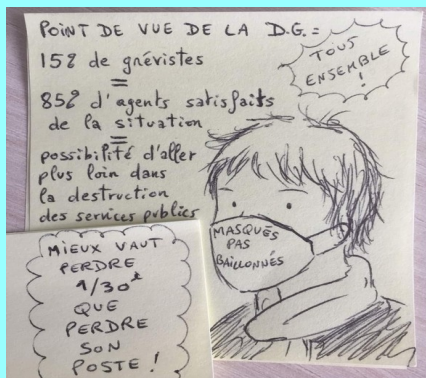 POINT DE VUE DE LA D.G. =
15% de grévistes
=
85% d'agents satisfaits
de la situation
=
possibilité d'aller
plus loin dans
la destruction
des services publics
TOUS
ENSEMBLE
!
MASQUÉS
PAS
BAILLONNÉS
MIEUX VAUT
PERDRE
1/30e
QUE
PERDRE
SON
POSTE !